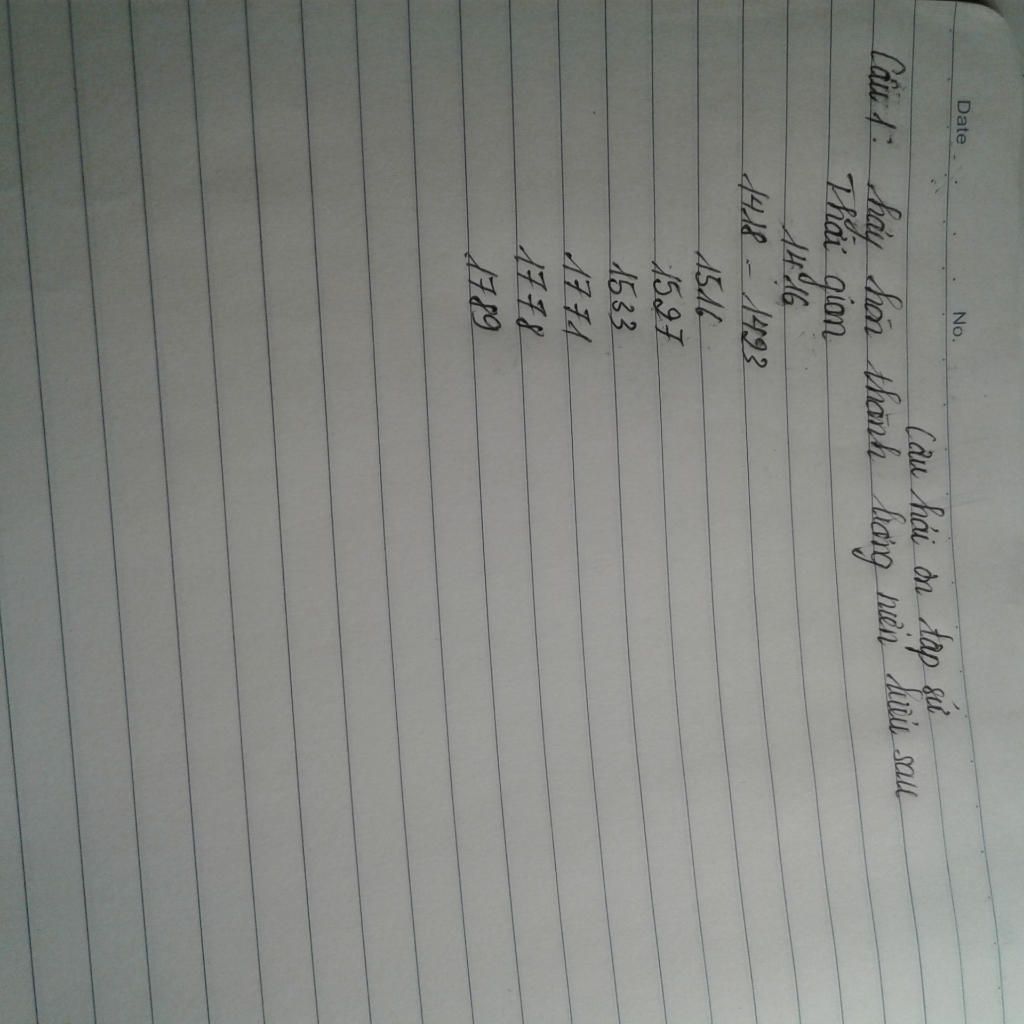 Date No.
Câu hỏi ôn tập sử
Câu 1: hãy hòn thành bảng niên biểu sau
Thời gian
1416
1418 - 1493
1516
1597
1533
1771
1778
1789